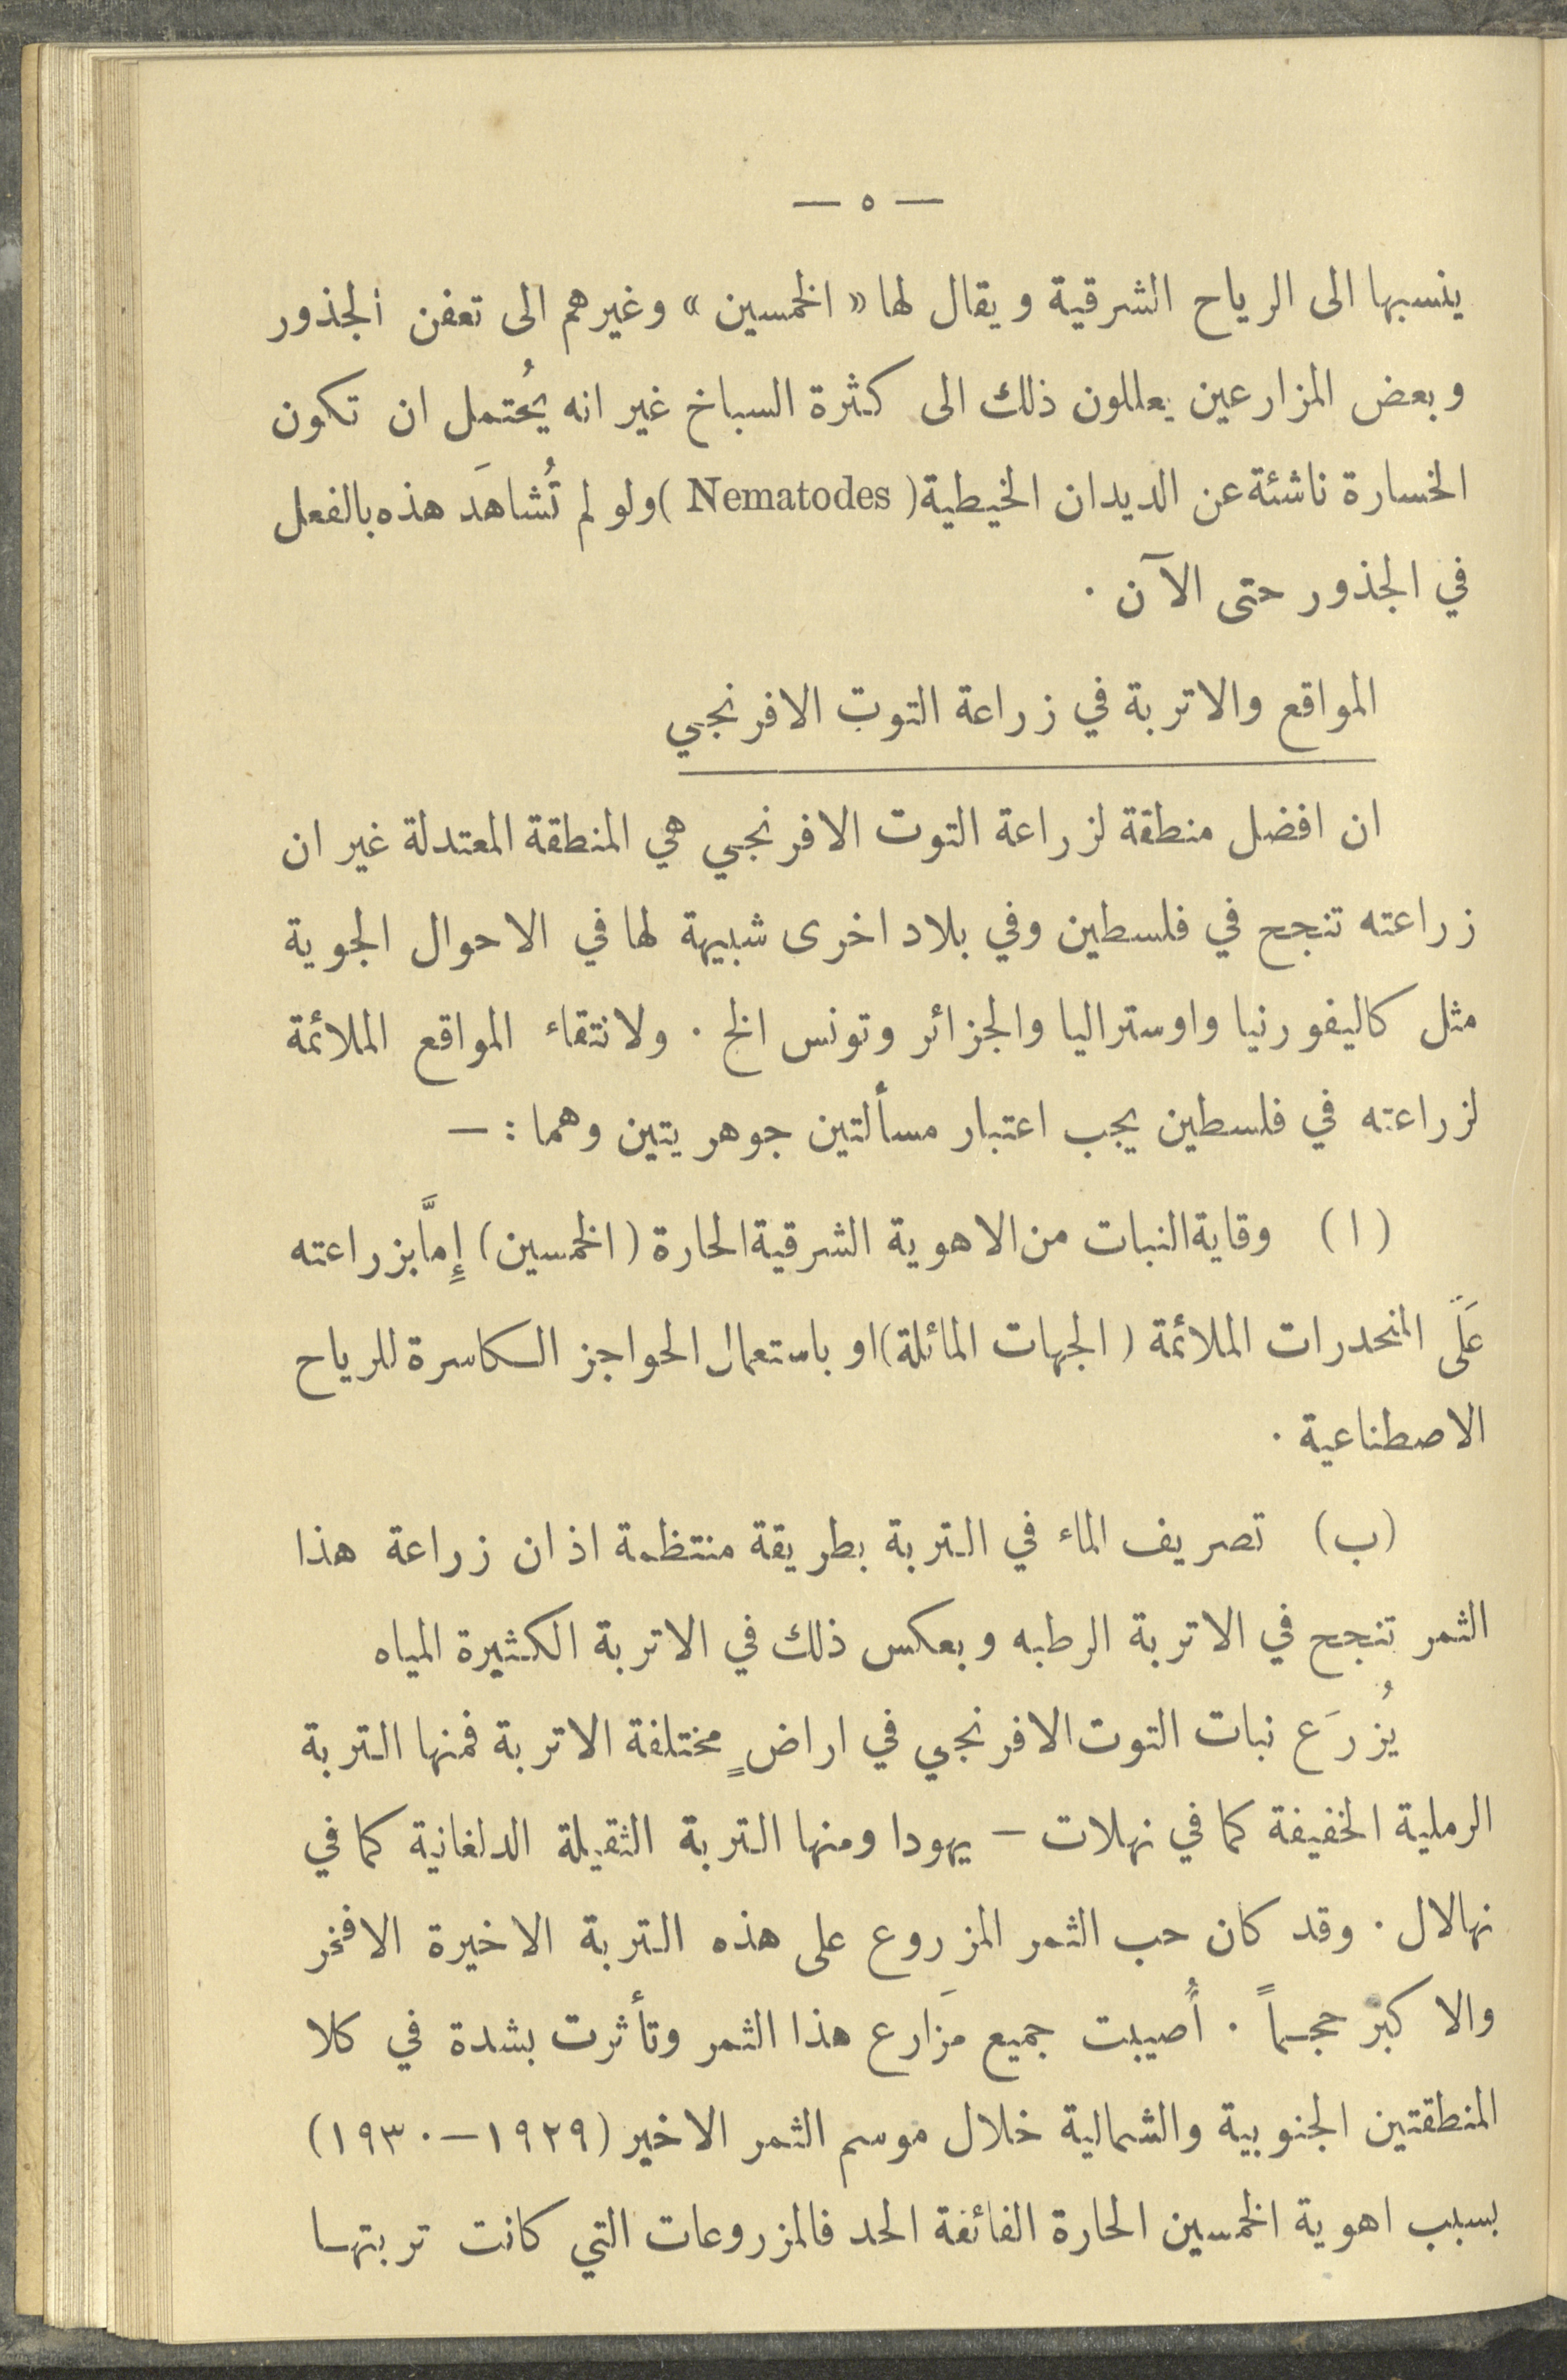 — ٥ —
ينسبها الى الرياح الشرقية ويقال لها « الخمسين » وغيرهم الى تعفن الجذور
وبعض المزارعين يعللون ذلك الى كثرة السباخ غير انه يُحتمل ان تكون
الخسارة ناشئة عن الديدان الخيطية ( Nematodes ) ولو لم تُشاهَد هذه بالفعل
في الجذور حتى الآن .
المواقع والاتربة في زراعة التوت الافرنجي
ان افضل منطقة لزراعة التوت الافرنجي هي المنطقة المعتدلة غير ان
زراعته تنجح في فلسطين وفي بلاد اخرى شبيهة لها في الاحوال الجوية
مثل كاليفورنيا واوستراليا والجزائر وتونس الخ . ولانتقاء المواقع الملائمة
لزراعته في فلسطين يجب اعتبار مسألتين جوهريتين وهما : —
( ا ) وقاية النبات من الاهوية الشرقية الحارة ( الخمسين ) إِمَّا بزراعته
عَلَى المنحدرات الملائمة ( الجهات المائلة ) او باستعمال الحواجز الكاسرة للرياح
الاصطناعية .
(ب) تصريف الماء في التربة بطريقة منتظمة اذ ان زراعة هذا
الثمر تنجح في الاتربة الرطبه وبعكس ذلك في الاتربة الكثيرة المياه
يُزرَع نبات التوت الافرنجي في اراضٍ مختلفة الاتربة فمنها التربة
الرملية الخفيفة كما في نهلات — يهودا ومنها التربة الثقيلة الدلغانية كما في
نهالال . وقد كان حب الثمر المزروع على هذه التربة الاخيرة الافخر
والاكبر حجماً . أُصيبت جميع مَزارع هذا الثمر وتأثرت بشدة في كلا
المنطقتين الجنوبية والشمالية خلال موسم الثمر الاخير (١٩٢٩—١٩٣٠)
بسبب اهوية الخمسين الحارة الفائقة الحد فالمزروعات التي كانت تربتها